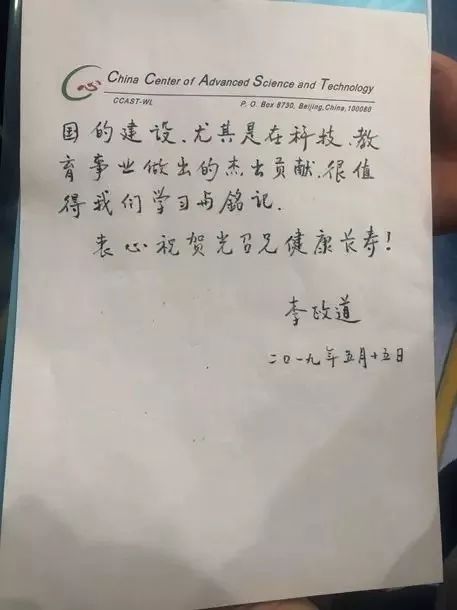 China Center of Advanced Science and Technology
CCAST-WL P. O. Box 8730, Beijing, China, 100080
国的建设、尤其是在科技、教
育事业做出的杰出贡献、很值
得我们学习与銘记.
衷心祝贺光召兄健康长寿!
李政道
二〇一九年五月十五日